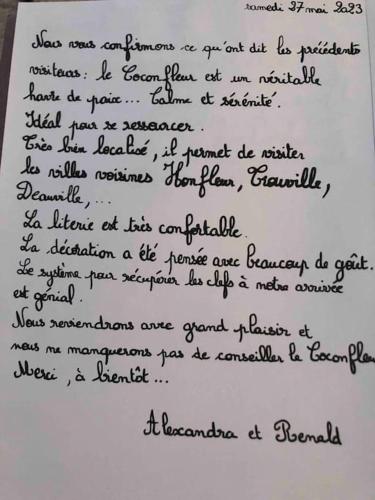 samedi 27 mai 2023
Nous vous confirmons ce qu'ont dit les précédents
visiteurs : le Coconfleur est un véritable
havre de paix... Calme et sérénité.
Idéal pour se ressourcer.
Très bien localisé, il permet de visiter
les villes voisines Honfleur, Trouville,
Deauville, ...
La literie est très confortable.
La décoration a été pensée avec beaucoup de goût.
Le système pour récupérer les clefs à notre arrivée
est génial.
Nous reviendrons avec grand plaisir et
nous ne manquerons pas de conseiller le Coconfleu
Merci, à bientôt...
Alexandra et Renald